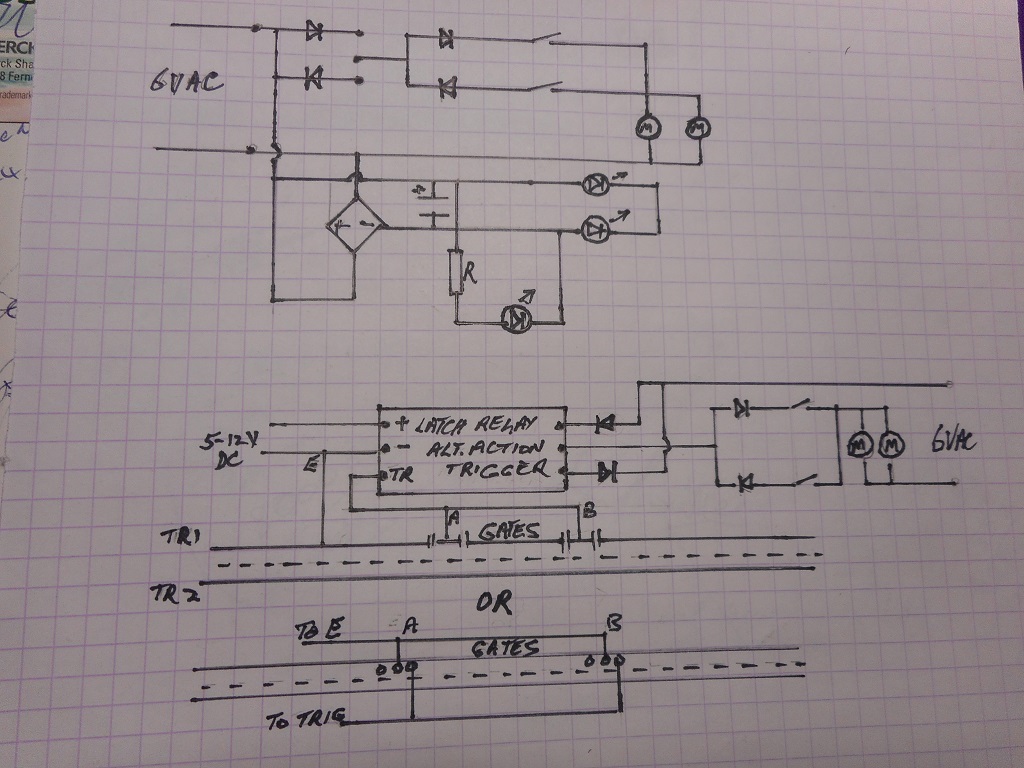 ERCH
ck Sha
8 Fern
rademark
6VAC
M M
+ -
R
+ LATCH RELAY
5-12V
DC
- ALT. ACTION
E
TR TRIGGER
M M
6VAC
A B
TR1 GATES
TR2
OR
TO E A B
GATES
TO TRIG